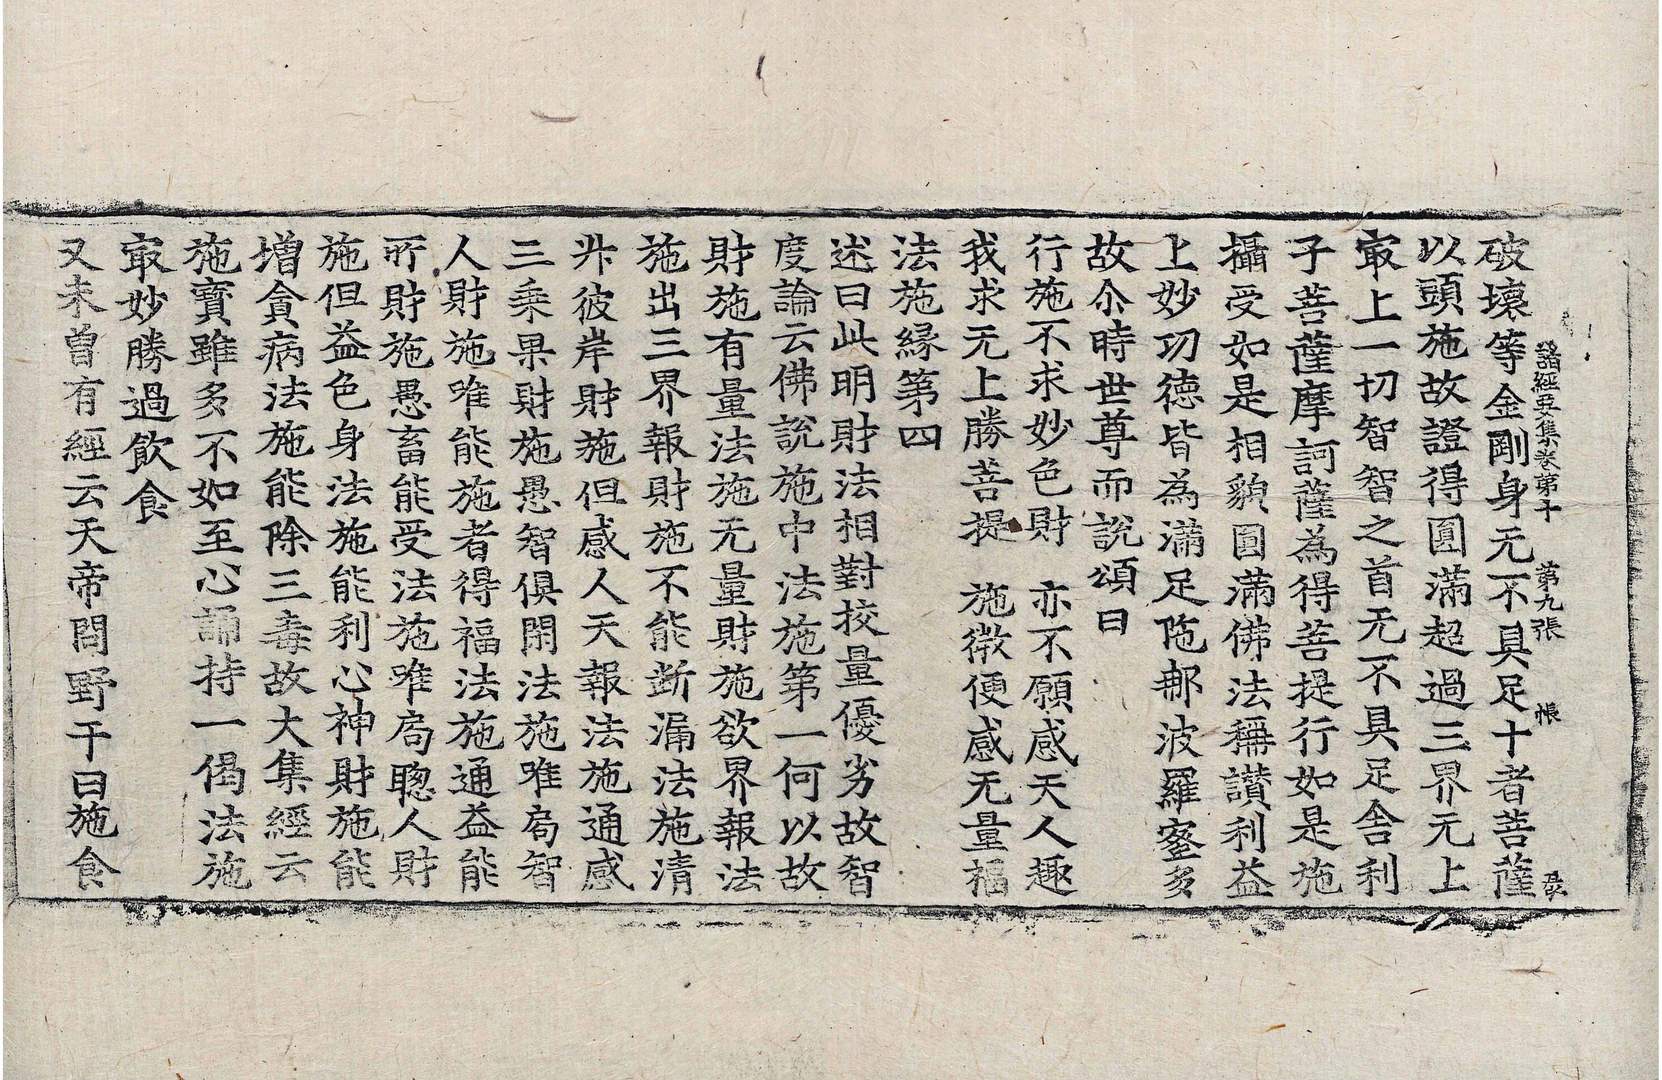 諸經要集卷第十 第九張 帳
破壞等金剛身无不具足十者菩薩
以頭施故證得圓滿超過三界无上
㝡上一切智智之首无不具足舍利
子菩薩摩訶薩為得菩提行如是施
攝受如是相貌圓滿佛法稱讚利益
上妙功德皆為滿足陁那波羅蜜多
故尒時世尊而說頌曰
行施不求妙色財 亦不願感天人趣
我求无上勝菩提 施微便感无量福
法施緣第四
述曰此明財法相對挍量優劣故智
度論云佛說施中法施第一何以故
財施有量法施无量財施欲界報法
施出三界報財施不能斷漏法施清
升彼岸財施但感人天報法施通感
三乘果財施愚智俱閑法施唯局智
人財施唯能施者得福法施通益能
所財施愚畜能受法施唯局聰人財
施但益色身法施能利心神財施能
增貪病法施能除三毒故大集經云
施寶雖多不如至心誦持一偈法施
㝡妙勝過飲食
又未曾有經云天帝問野干曰施食